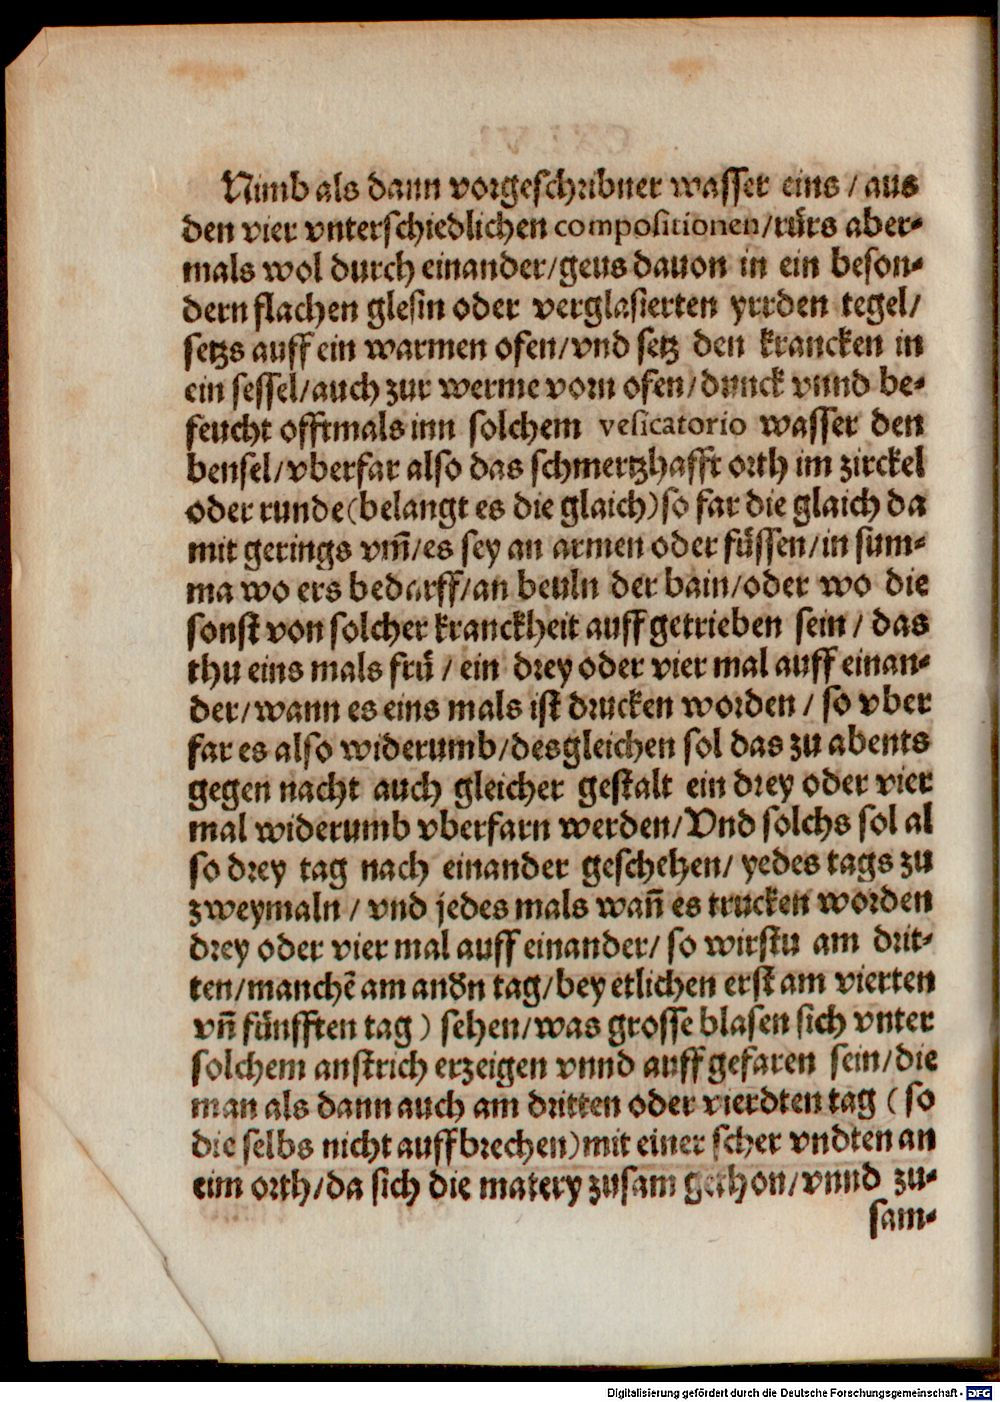 Nimb als dann vorgeschribner wasser eins / aus
den vier vnterschiedlichen compositionen/rürs aber-
mals wol durch einander/geus dauon in ein beson-
dern flachen glesin oder verglasierten yrrden tegel/
setzs auff ein warmen ofen/vnd setz den krancken in
ein sessel/auch zur werme vom ofen/dunck vnnd be-
feucht offtmals inn solchem vesicatorio wasser den
bensel/vberfar also das schmertzhafft orth im zirckel
oder runde(belangt es die glaich)so far die glaich da
mit gerings vm̃/es sey an armen oder füssen/in sum-
ma wo ers bedarff/an beuln der bain/oder wo die
sonst von solcher kranckheit auff getrieben sein / das
thu eins mals frü / ein drey oder vier mal auff einan-
der/wann es eins mals ist drucken worden / so vber
far es also widerumb/desgleichen sol das zu abents
gegen nacht auch gleicher gestalt ein drey oder vier
mal widerumb vberfarn werden/Vnd solchs sol al
so drey tag nach einander geschehen/ yedes tags zu
zweymaln / vnd jedes mals wañ es trucken worden
drey oder vier mal auff einander/ so wirstu am drit-
ten/manchẽ am andn tag/bey etlichen erst am vierten
vñ fünfften tag ) sehen/was grosse blasen sich vnter
solchem anstrich erzeigen vnnd auff gefaren sein/die
man als dann auch am dritten oder vierdten tag ( so
die selbs nicht auffbrechen)mit einer scher vndten an
eim orth/da sich die matery zusam gethon/vnnd zu-
sam-
Digitalisierung gefördert durch die Deutsche Forschungsgemeinschaft - DFG